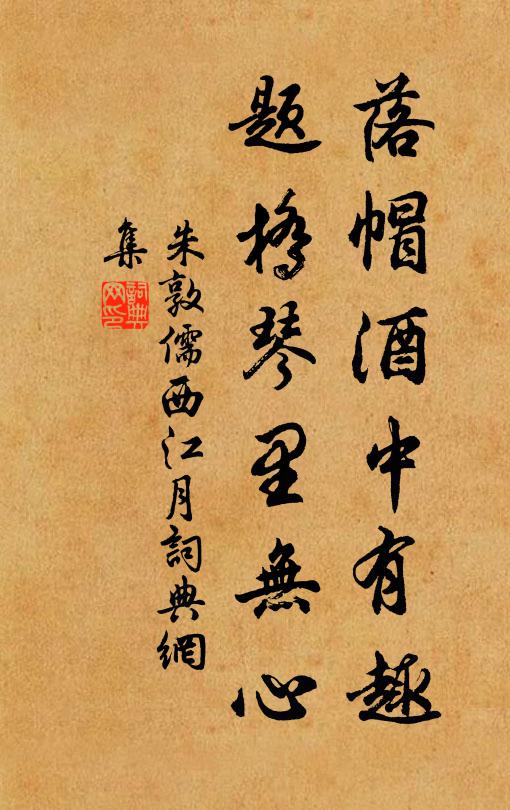 落帽酒中有趣
題橋琴里無心
朱敦儒西江月詞典網
集
詞典網印